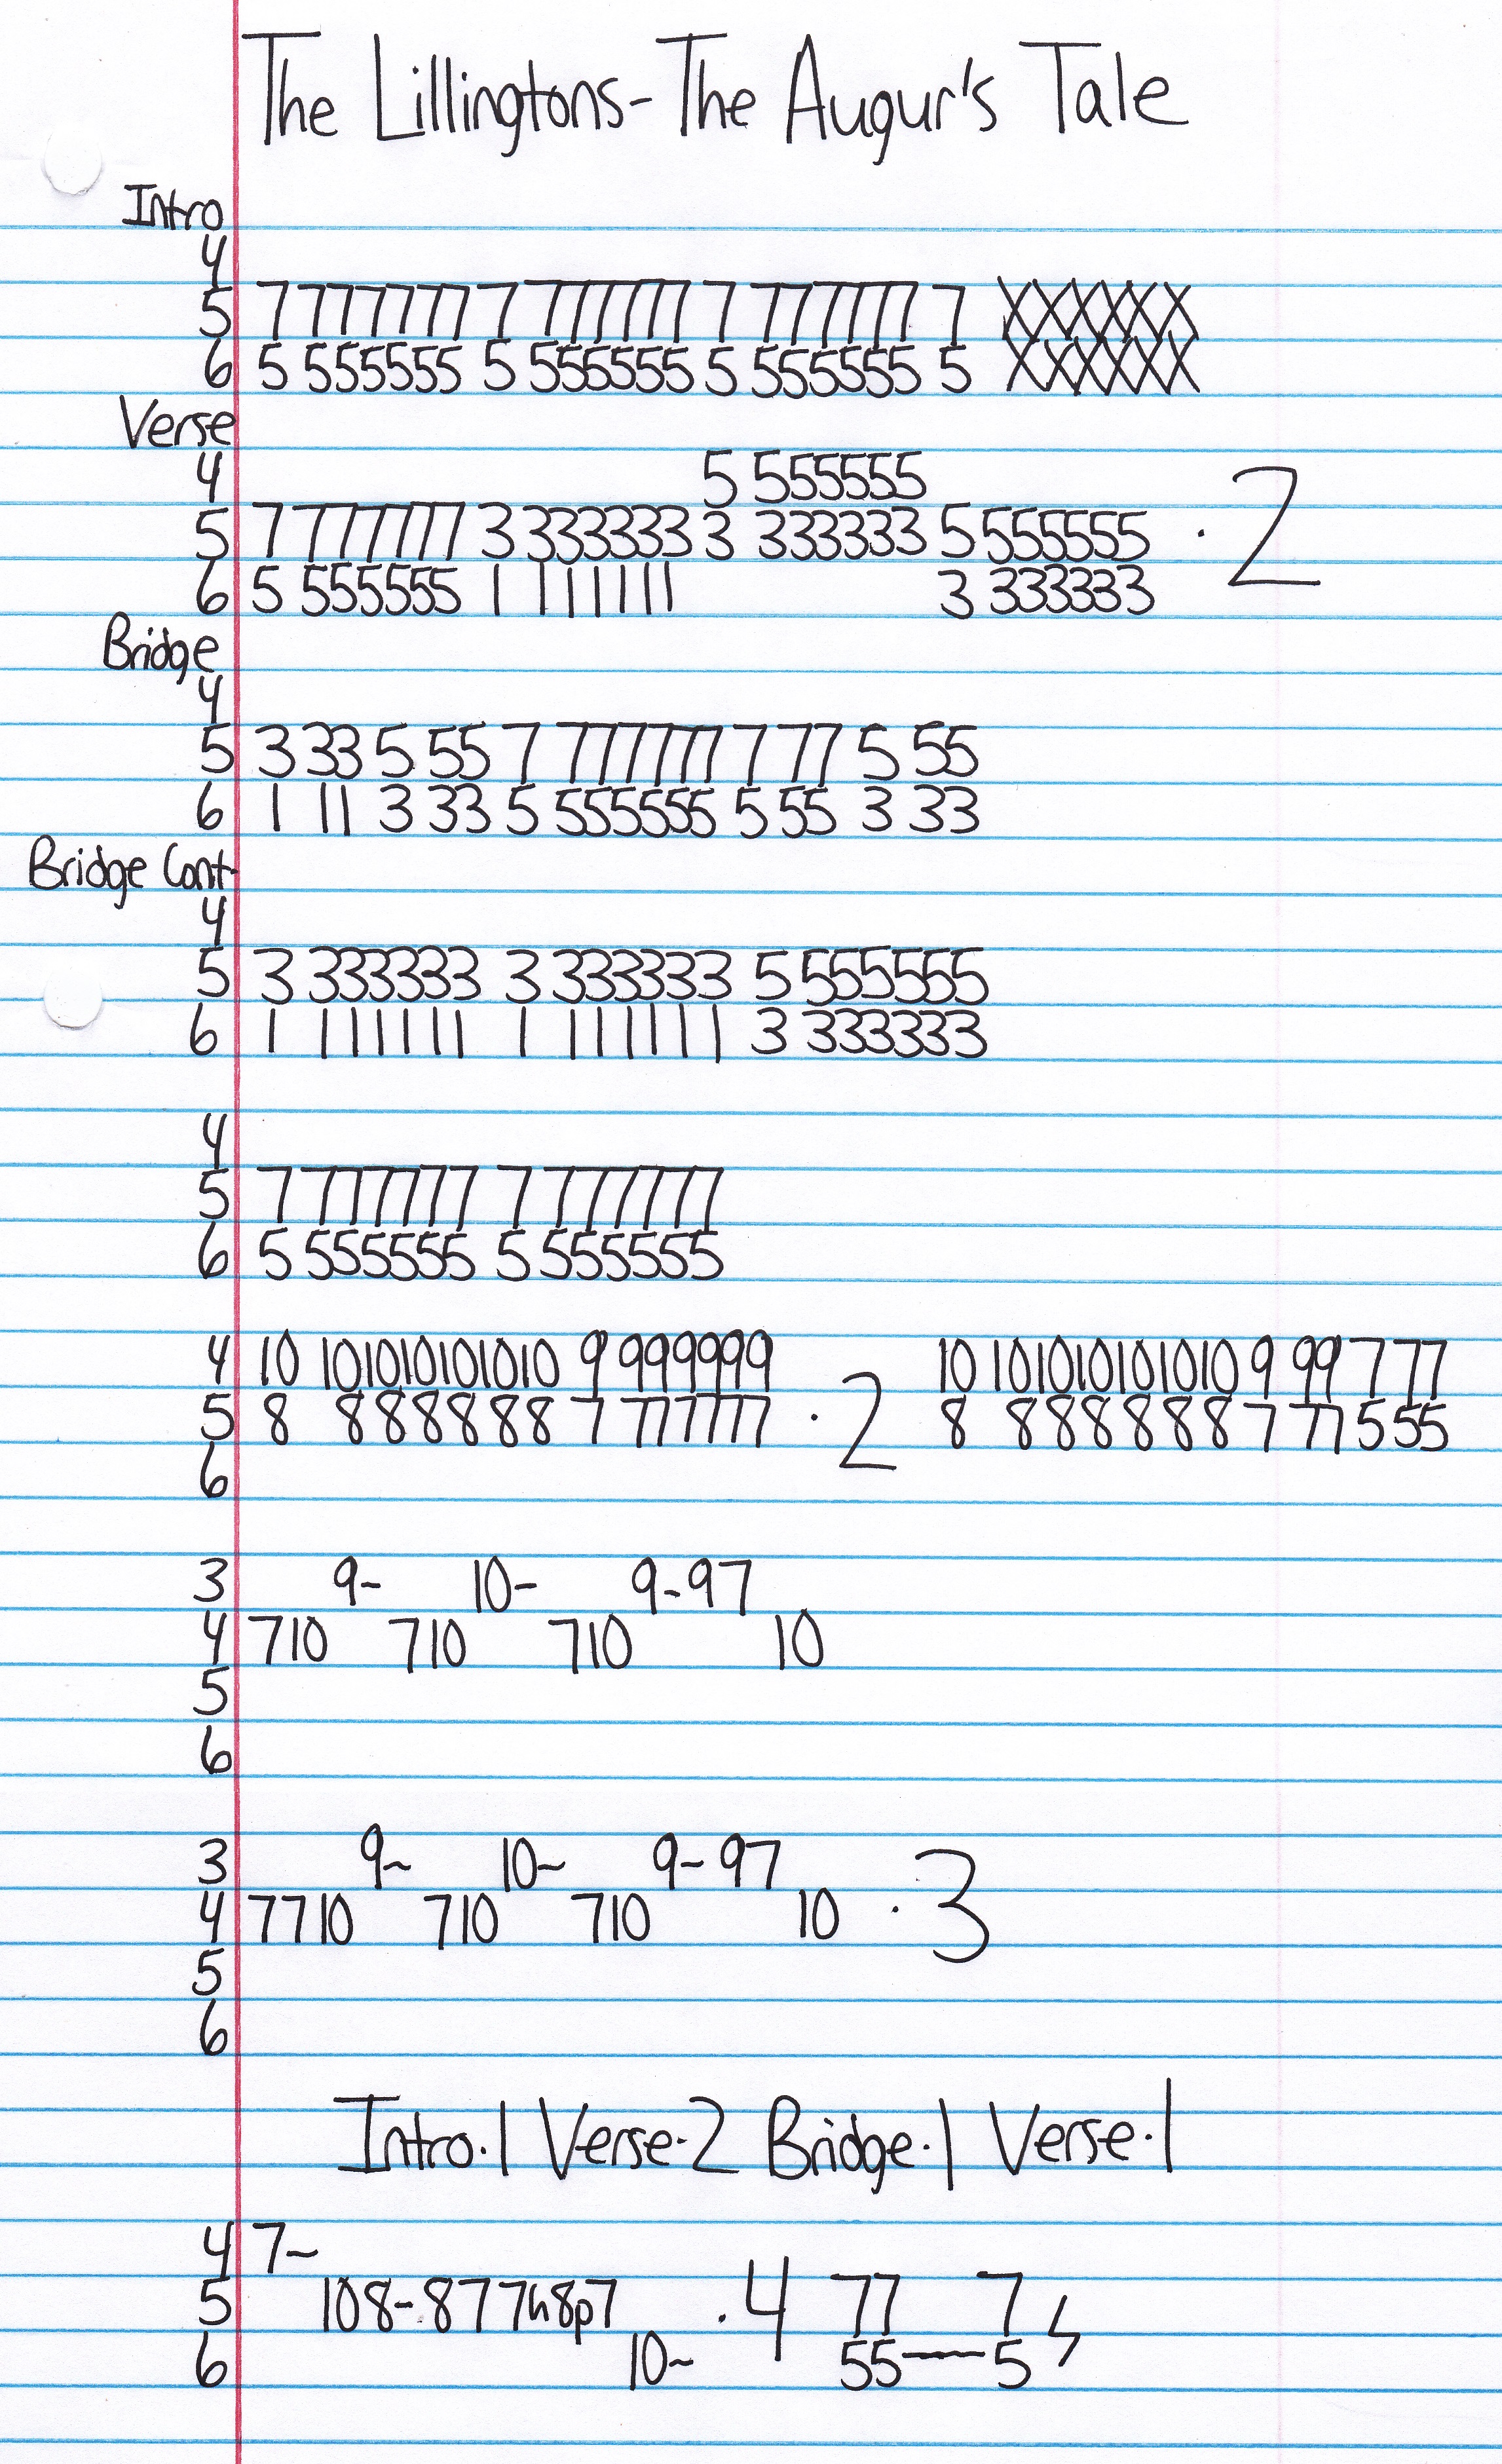 The Lillingtons-The Augur's Tale
Intro
4
5 7 777777 7 777777 7 777777 7 XXXXXX
6 5 555555 5 555555 5 555555 5 XXXXXX
Verse
4 5 555555
5 7 777777 3 333333 3 333333 5 555555 · 2
6 5 555555 1 111111 3 333333
Bridge
4
5 3 33 5 55 7 777777 7 77 5 55
6 1 11 3 33 5 555555 5 55 3 33
Bridge Cont.
4
5 3 333333 3 333333 5 555555
6 1 111111 1 111111 3 333333
4
5 7 777777 7 777777
6 5 555555 5 555555
4 10 101010101010 9 999999 10 101010101010 9 99 7 77
5 8 888888 7 777777 · 2 8 888888 7 77 5 55
6
3 9- 10- 9-97
4 710 710 710 10
5
6
3 9~ 10~ 9~97
4 7710 710 710 10 · 3
5
6
Intro·1 Verse·2 Bridge·1 Verse·1
4 7~
5 108-877h8p7 · 4 77 7
6 10~ 55—5